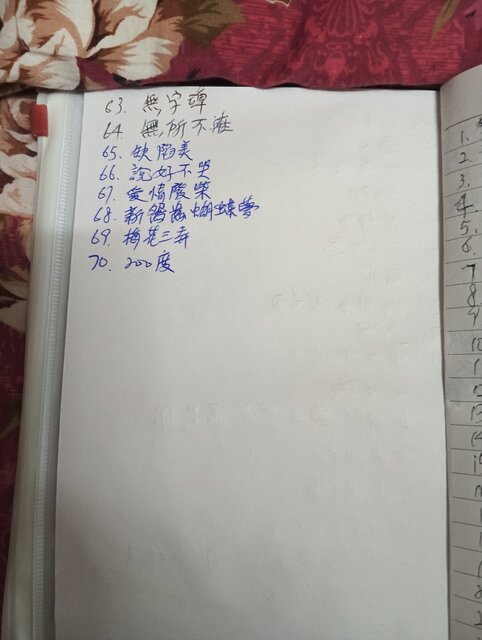 63. 無字碑
64. 無所不在
65. 缺陷美
66. 說好不哭
67. 愛情廢柴
68. 新鴛鴦蝴蝶夢
69. 梅花三弄
70. 200度
1.
2.
3.
4.
5.
6.
7
8
9
10